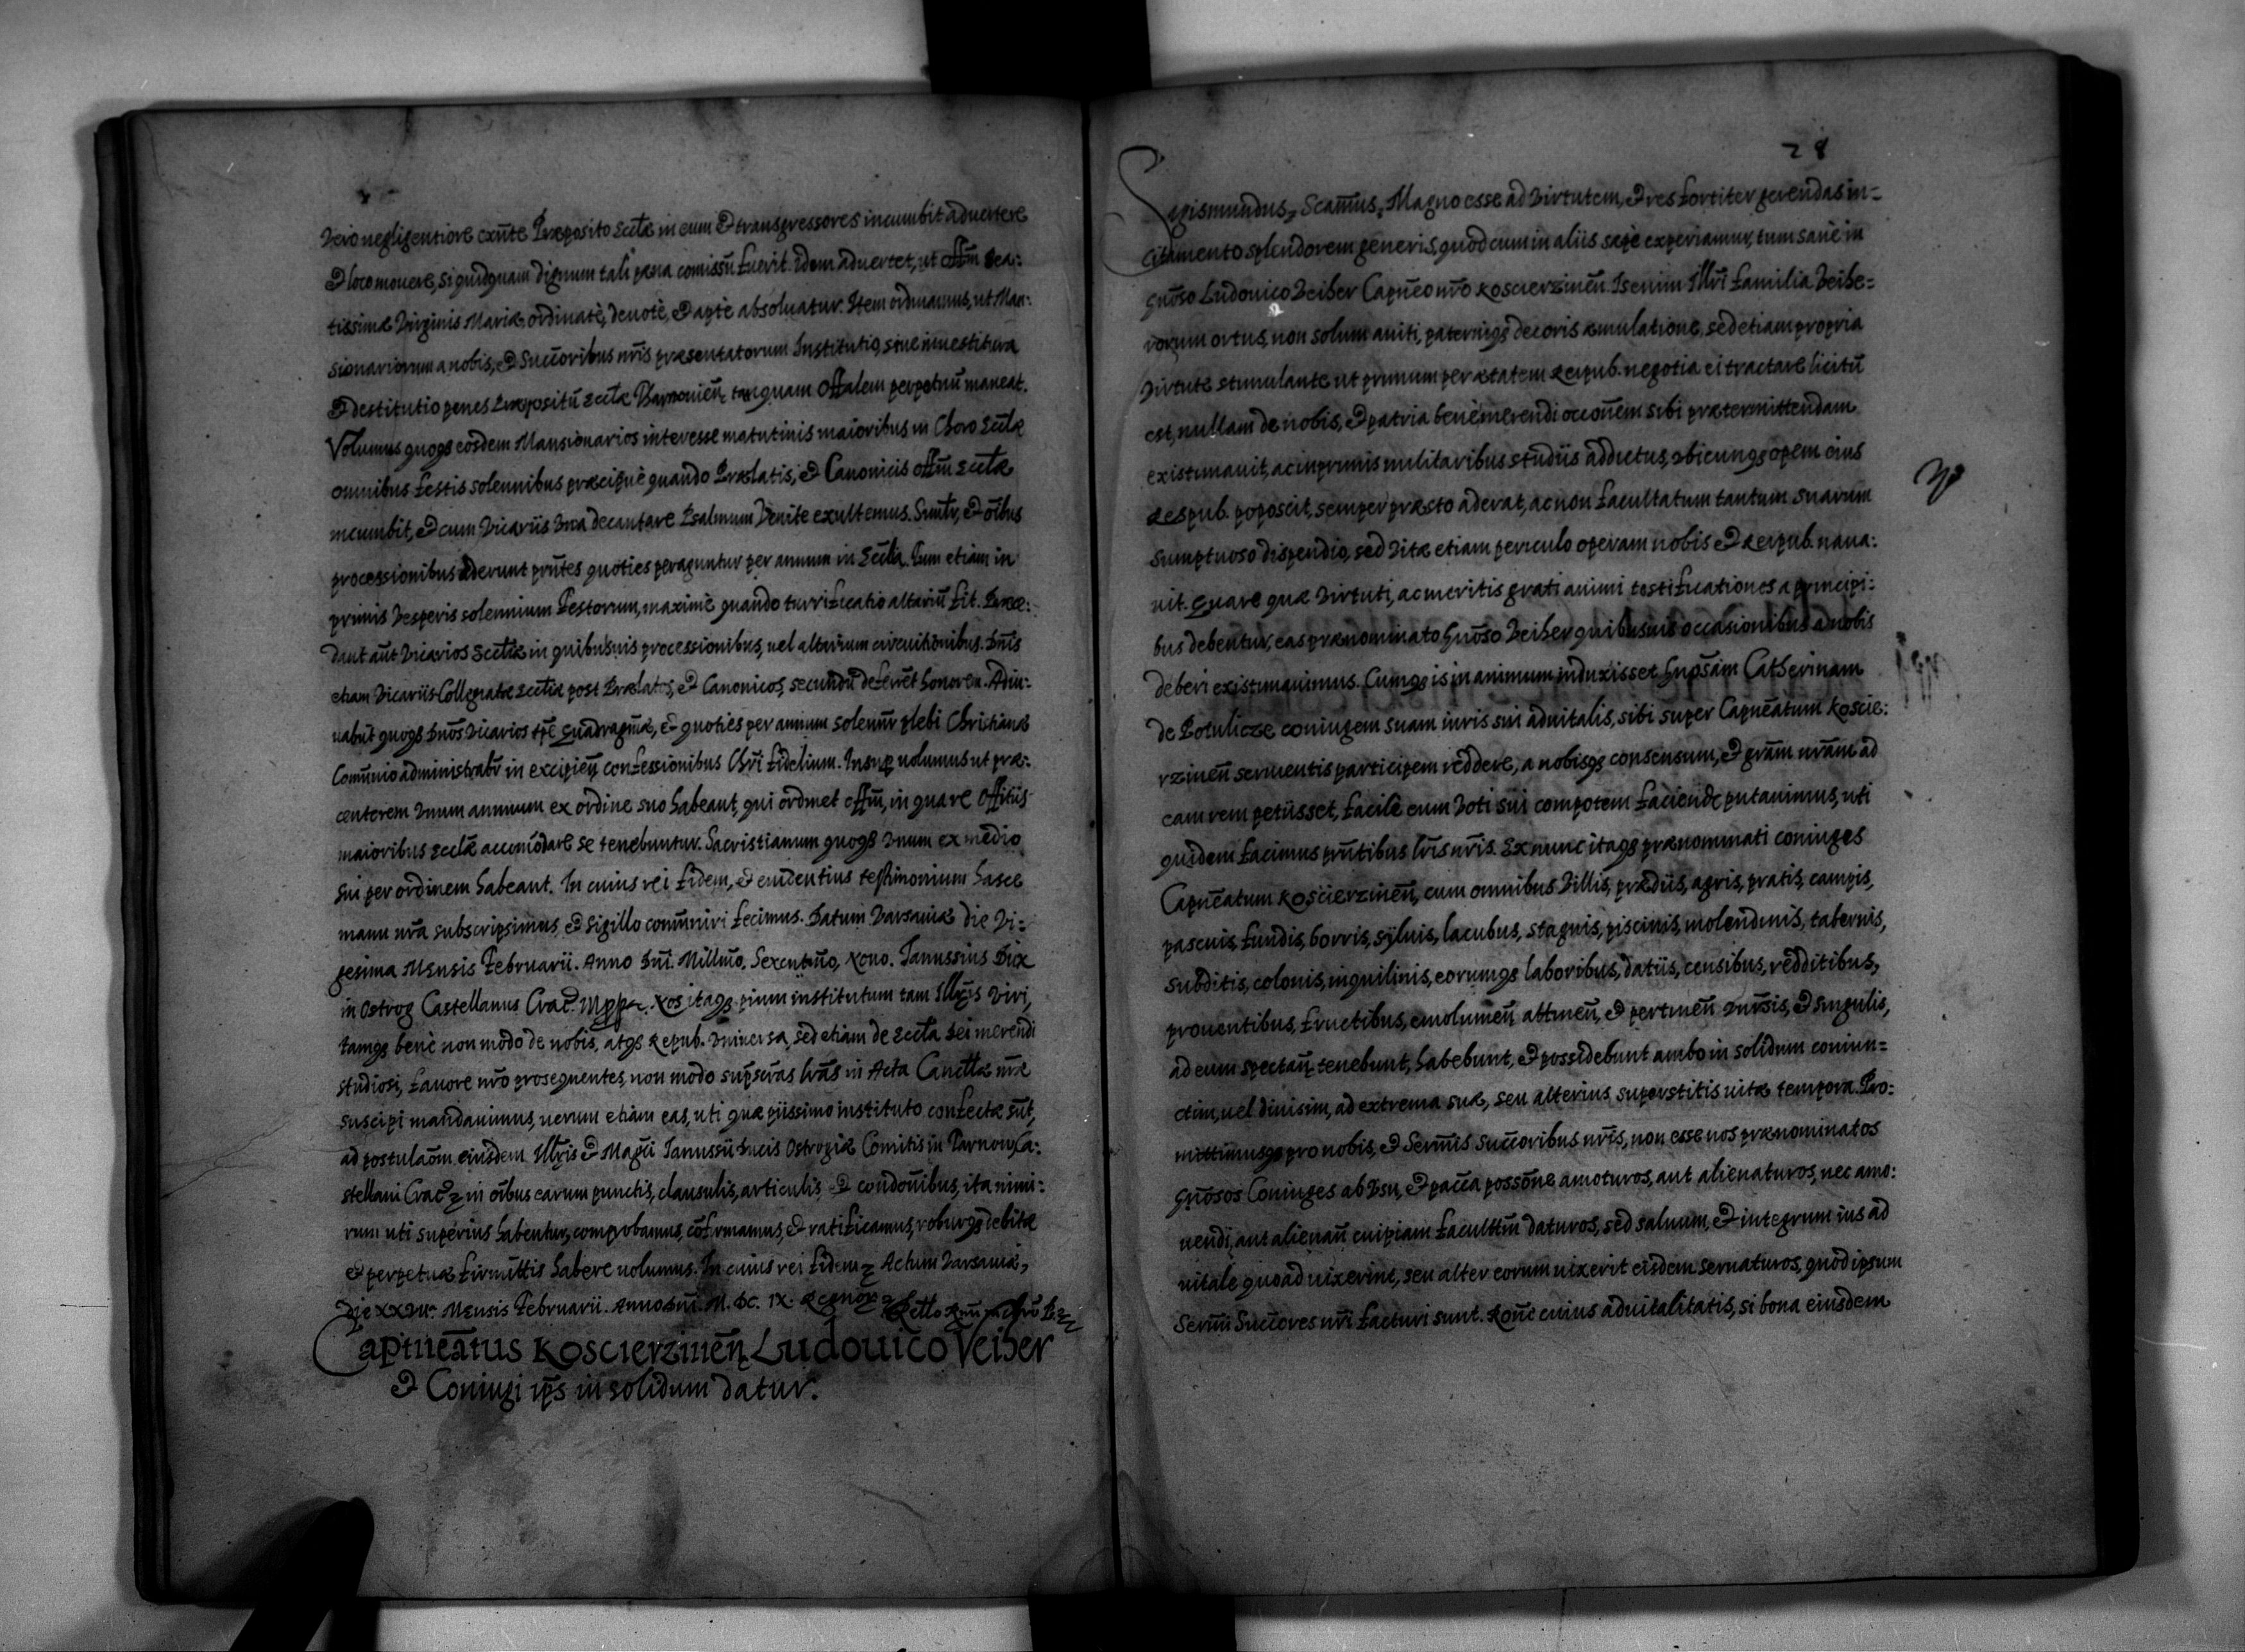 Vero negligentiore exñte Præposito Eccłæ in eum & transgressores incumbit aduertere
& loco mouere, si quidquam dignum tali pæna comissũ fuerit. idem aduertet, ut offm̃ Bea:
tissimæ Virginis Mariæ, ordinatè, deuotè, & aptè absoluatur. Item ordinamus, ut Man:
sionariorum a nobis, & Succ̃oribus nr̃is præsentatorum Institutio, siue inuestitura
& destitutio penes Præpositũ Eccłæ tanquam Offãlem perpetuũ maneat.
Volumus quoqȝ eosdem Mansionarios interesse matutinis maioribus in Choro Eccłæ
omnibus festis solennibus præcipuè quando Prælatis, & Canonicis offm̃ Eccłæ
incumbit, & cum Vicariis Vna decantare Psalmum Venite exultemus. Simłr, & õibus
processionibus aderunt pñtes quoties peraguntur per annum in Eccła. Tum etiam in
primis Vesperis solennium Festorum, maximè quando turrificatio altariũ fit. Præce:
dant aũt Vicarios Eccłæ in quibusuis processionibus, uel altarium circuitionibus. Dñis
etiam Vicariis Collegiatæ Eccłiæ post Prælatos, & Canonicos, secundũ deferẽt honorem. Adiu:
uabũt quoqȝ Dñõs Vicarios tp̃e Quadragm̃æ, & quoties per annum solennr̃ plebi Christianæ
Com̃unio administrabr̃ in excipieñ confessionibus Chr̃i fidelium. Insup uolumus ut præ:
centorem Vnum annuum ex ordine suo habeant, qui ordinet offm̃, in qua re Offitiis
maioribus Eccłæ accom̃odare se tenebuntur. Sacristianum quoqȝ Vnum ex medio
sui per ordinem habeant. In cuius rei fidem, & euidentius testimonium hasce
manu nr̃a subscripsimus, & sigillo com̃uniri fecimus. Datum Varsauiæ die Vi:
gesima Mensis Februarii. Anno Dñi. Millm̃o, Sexcentm̃o, Nono. Ianussius Dux
in Ostrog Castellanus Crac̃. mppa. Nos itaqȝ pium institutum tam Illr̃is Viri,
tamqȝ benè non modo de nobis, atqȝ Repub. Vniuersa, sed etiam de Eccła Dei merendi
studiosi, fauore nr̃o prosequentes, non modo sup̃scr̃as lr̃as in Acta Cancłłæ nr̃æ
suscipi mandauimus, uerum etiam eas, uti quæ piissimo instituto confectæ sũt,
ad postulaõm eiusdem Illr̃is & Magc̃i Ianussii Ducis Ostrogiæ Comitis in Tarnow, Ca:
stellani Crac̃ in õibus earum punctis, clausulis, articulis, & condoñibus, ita nimi:
rum uti superius habentur, comprobamus, cõfirmamus, & ratificamus, roburqȝ debitæ
& perpetuæ firmittis habere uolumus. In cuius rei fidem Actum Varsauiæ,
die XXIII. Mensis Februarii. Anno Dñi. M. DC. IX. Regnor
Captneãtus Koscierzineñ Ludouico Veiher
& Coniugi ip̃s in solidum datur.
28
Sigismundus, Scam̃us, Magno esse ad Virtutem, & res fortiter gerendas in-
citamento splendorem generis, quod cum in aliis sæpè experiamur, tum sanè in
Gnõso Ludouico Veiher Capnẽo nr̃o Koscierzineñ. Is enim Illr̃i familia Veihe-
rorum ortus, non solum auiti, paterniqȝ decoris æmulatione, sed etiam propria
Virtute stimulante ut primum per ætatem Reipub. negotia ei tractare licitũ
est, nullam de nobis, & patria benè merendi occoñem sibi prætermittendam
existimauit, ac inprimis militaribus studiis addictus, Vbicunqȝ opem eius
Respub. poposcit, semper præsto aderat, ac non facultatum tantum suarum
sumptuoso dispendio, sed Vitæ etiam periculo operam nobis & Reipub. naua:
uit. Quare quæ Virtuti, ac meritis grati animi testificationes a principi:
bus debentur, eas prænominato Gnõso Veiher quibusuis occasionibus a nobis
deberi existimauimus. Cumqȝ is in animum induxisset Gnõsam Catherinam
de Potulicze coniugem suam iuris sui aduitalis, sibi super Capneãtum Koscie:
rzineñ seruientis participem reddere, a nobisqȝ consensum, & gr̃am nr̃am ad
eam rem petiisset, facilè eum Voti sui compotem faciend putauimus, uti
quidem facimus pñtibus lr̃is nr̃is. Ex nunc itaqȝ prænominati coniuges
Capneãtum Koscierzineñ, cum omnibus Villis, prædiis, agris, pratis, campis,
pascuis, fundis, borris, syluis, lacubus, stagnis, piscinis, molendinis, tabernis,
subditis, colonis, inquilinis, eorumqȝ laboribus, datiis, censibus, redditibus,
prouentibus, fructibus, emolumeñ attineñ, & pertineñ Vnr̃sis, & singulis,
ad eum spectañ tenebunt, habebunt, & possidebunt ambo in solidum coniun-
ctim, uel diuisim, ad extrema suæ, seu alterius superstitis uitæ tempora. Pro:
mittimusqȝ pro nobis, & Serm̃is Succ̃oribus nr̃is, non esse nos prænominatos
Gnõsos Coniuges ab Vsu, & pacc̃a possoñe amoturos, aut alienaturos, nec amo:
uendi, aut alienañ cuipiam facultm̃ daturos, sed saluum, & integrum ius ad
uitale quoad uixerint, seu alter eorum uixerit eisdem seruaturos, quod ipsum
Serm̃i Succ̃ores nr̃i facturi sunt. Roñe cuius aduitalitatis, si bona eiusdem